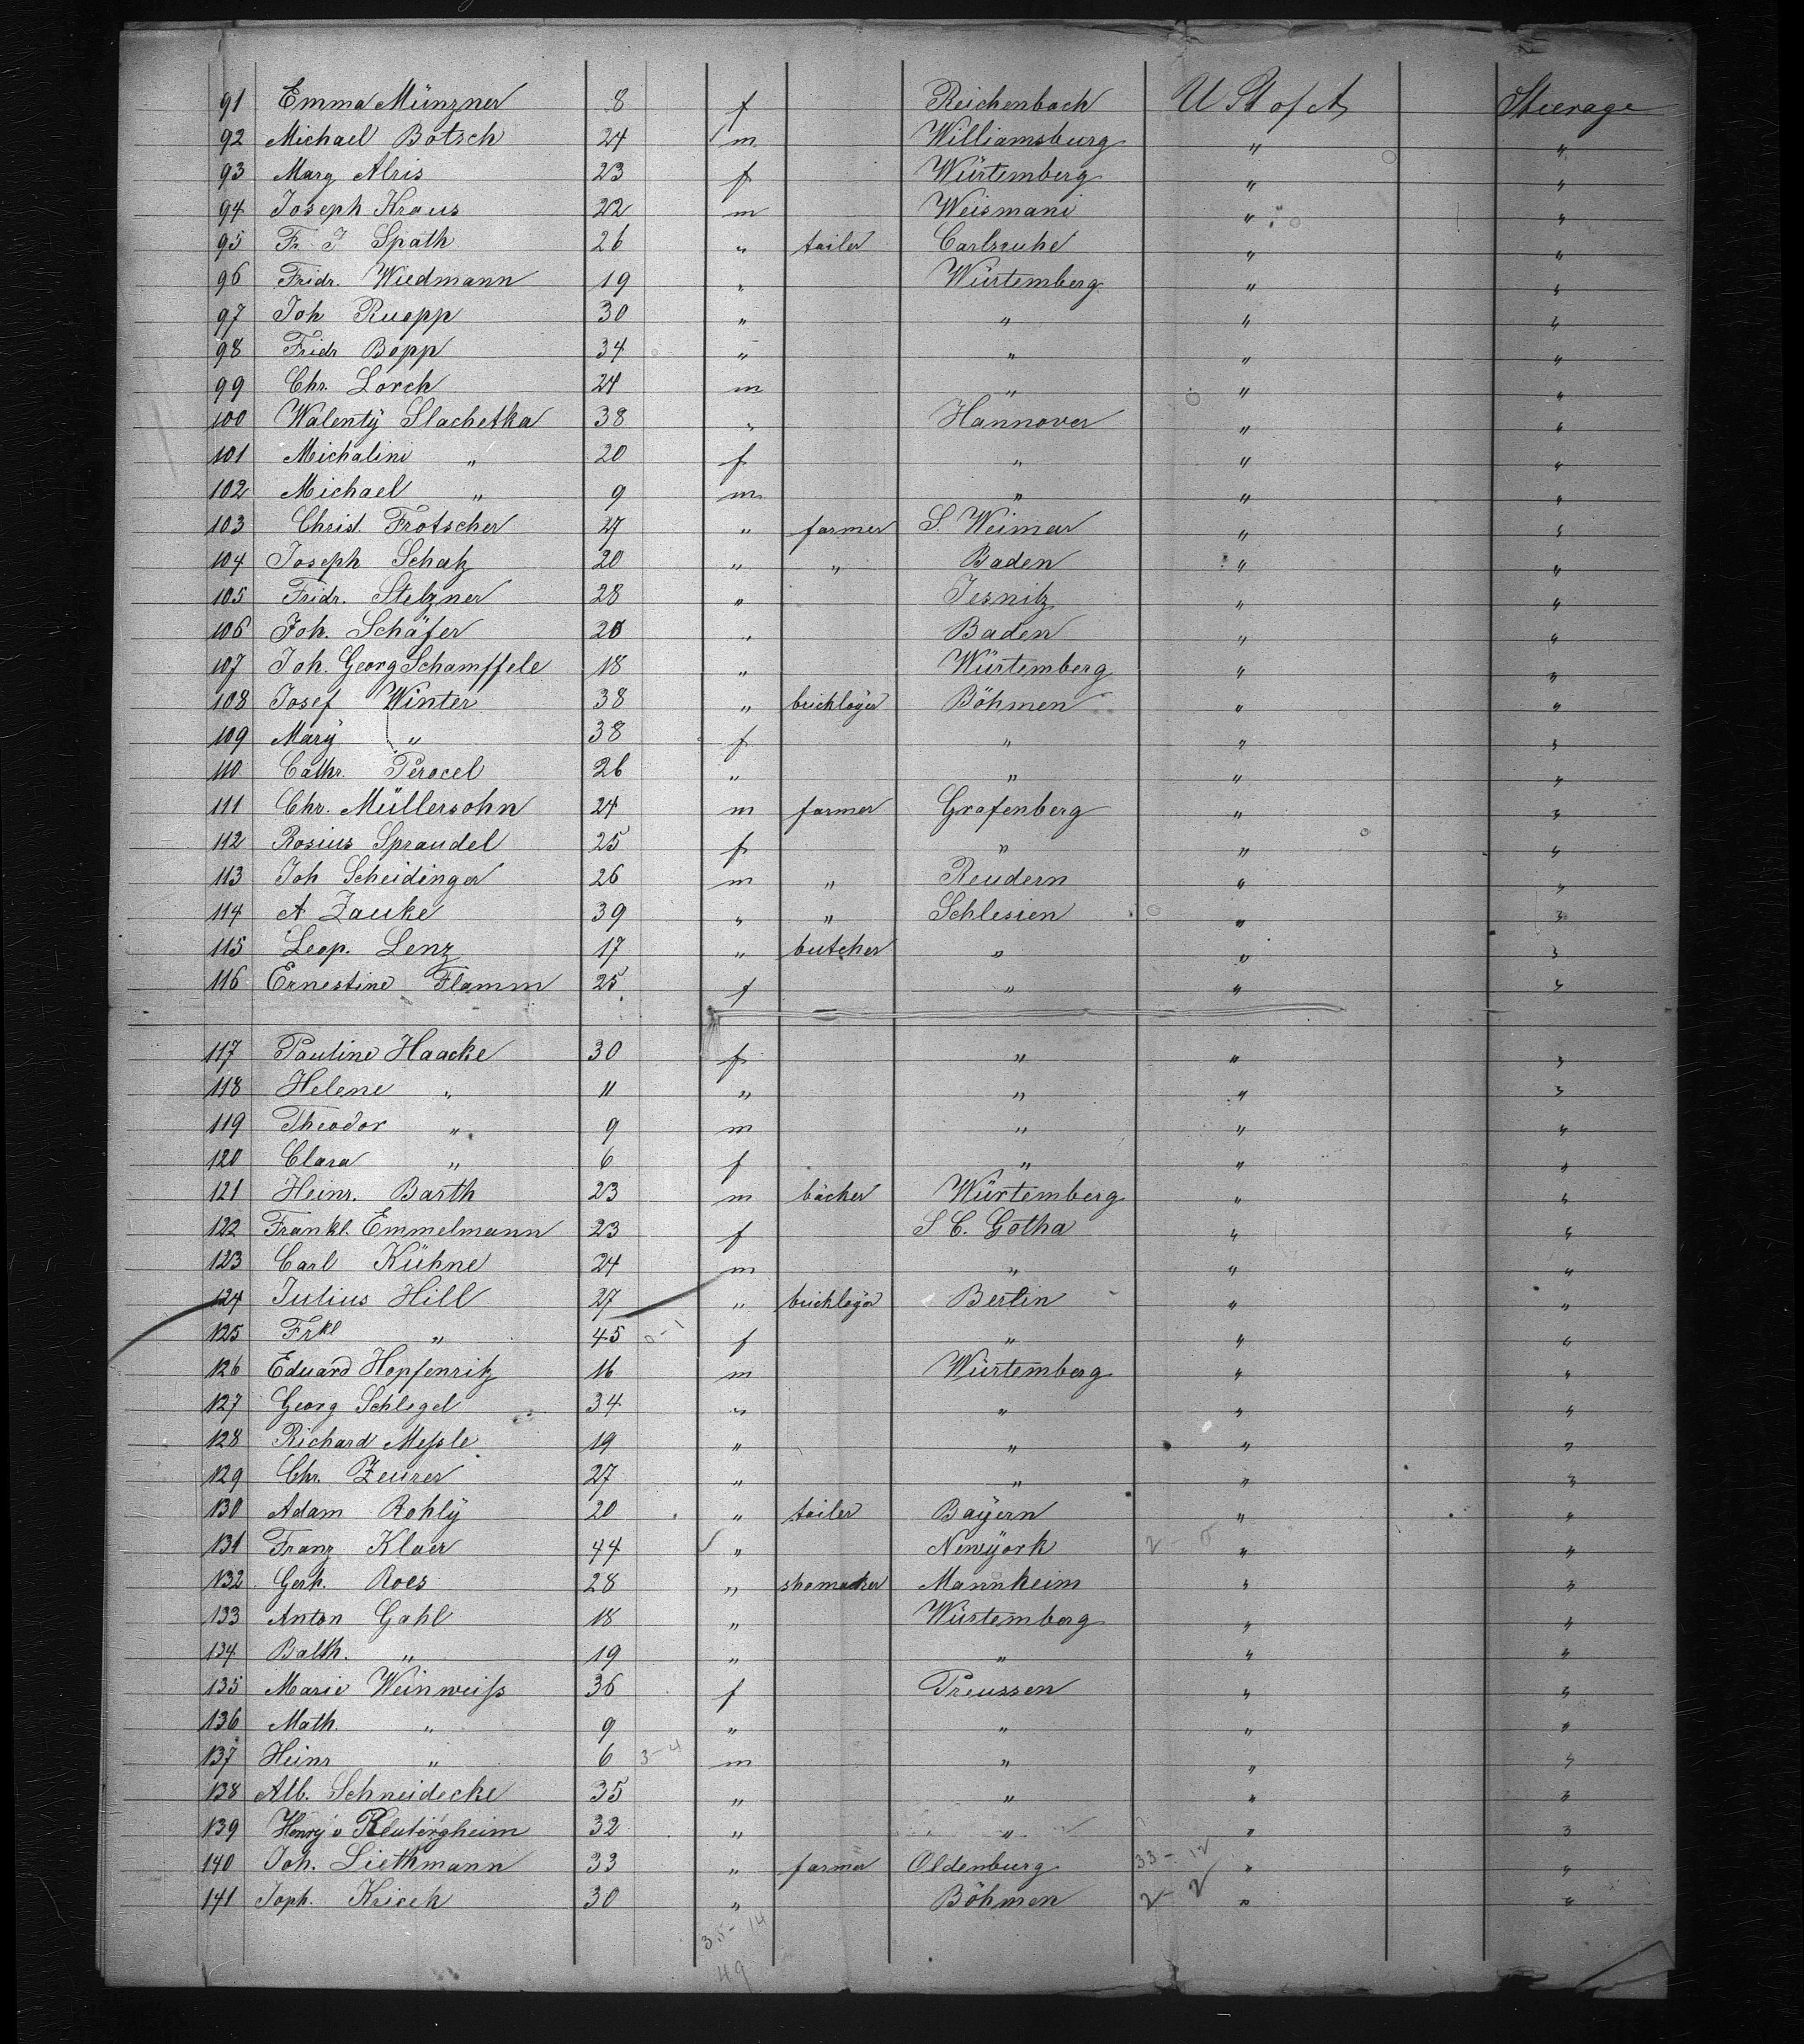 91 Emma Münzner 8 f Reichenbach U St of A Steerage
92 Michael Botsch 24 m Williamsburg " "
93 Marg Alris 23 f Würtemberg " "
94 Joseph Kraus 22 m Weismani " "
95 Fr. J Spath 26 " tailer Carlsruhe " "
96 Fridr. Wiedmann 19 " Würtemberg " "
97 Joh Ruopp 30 " " " "
98 Fridr Bopp 34 " " " "
99 Chr. Lorch 24 m " " "
100 Walentÿ Slachetka 38 " Hannover " "
101 Michalini " 20 f " " "
102 Michael " 9 m " " "
103 Christ. Frotscher 27 " farmer S. Weimar " "
104 Joseph Schatz 20 " " Baden " "
105 Fridr. Stelzner 28 " Jesnitz " "
106 Joh. Schäfer 20 " Baden " "
107 Joh. Georg Schamffele 18 " Würtemberg " "
108 Josef Winter 38 " bricklöger Böhmen " "
109 Marÿ " 38 f " " "
110 Cathr. Perocel 26 " " " "
111 Chr. Müllersohn 24 m farmer Grafenberg " "
112 Rosius Spraudel 25 f " " "
113 Joh Scheidinger 26 m " Reudern " "
114 A Zauke 39 " " Schlesien " "
115 Leop. Lenz 17 " butcher " " "
116 Ernestine Flamm 25 f " " "
117 Pauline Haacke 30 f " " "
118 Helene " 11 " " " "
119 Theodor " 9 m " " "
120 Clara " 6 f " " "
121 Heinr. Barth 23 m bäcker Würtemberg " "
122 Frankl. Emmelmann 23 f S C. Gotha " "
123 Carl Kühne 24 m " " "
124 Julius Hill 27 " bricklöger Berlin " "
125 Frkl " 45 0-1 f " " "
126 Eduard Hopfenritz 16 m Würtemberg " "
127 Georg Schlegel 34 " " " "
128 Richard Meſsle 19 " " " "
129 Chr. Zeurer 27 " " " "
130 Adam Rohlÿ 20 " tailer Bayern " "
131 Franz Klaer 44 " Newÿork 2-0 " "
132 Gerh. Roes 28 " shomacker Mannheim " "
133 Anton Gahl 18 " Würtemberg " "
134 Balth. " 19 " " " "
135 Marie Weinweiſs 36 f Preussen " "
136 Math. " 9 " " " "
137 Heinr " 6 3-4 m " " "
138 Alb. Schneidecke 35 " " " "
139 Henrÿ v Reutergheim 32 " " " "
140 Joh. Liethmann 33 " farmer Oldenburg 33-12 " "
141 Joph. Krisch 30 " Böhmen 2-2 " "
35-14
49